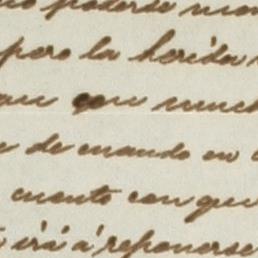 no poderse mon
pero la herida
con much
de cuando en
cuento con que
irá á reponerse